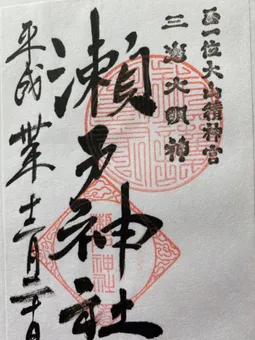 正一位大山積神宮
三島大明神
瀬戸神社
平成卅年十二月二十日